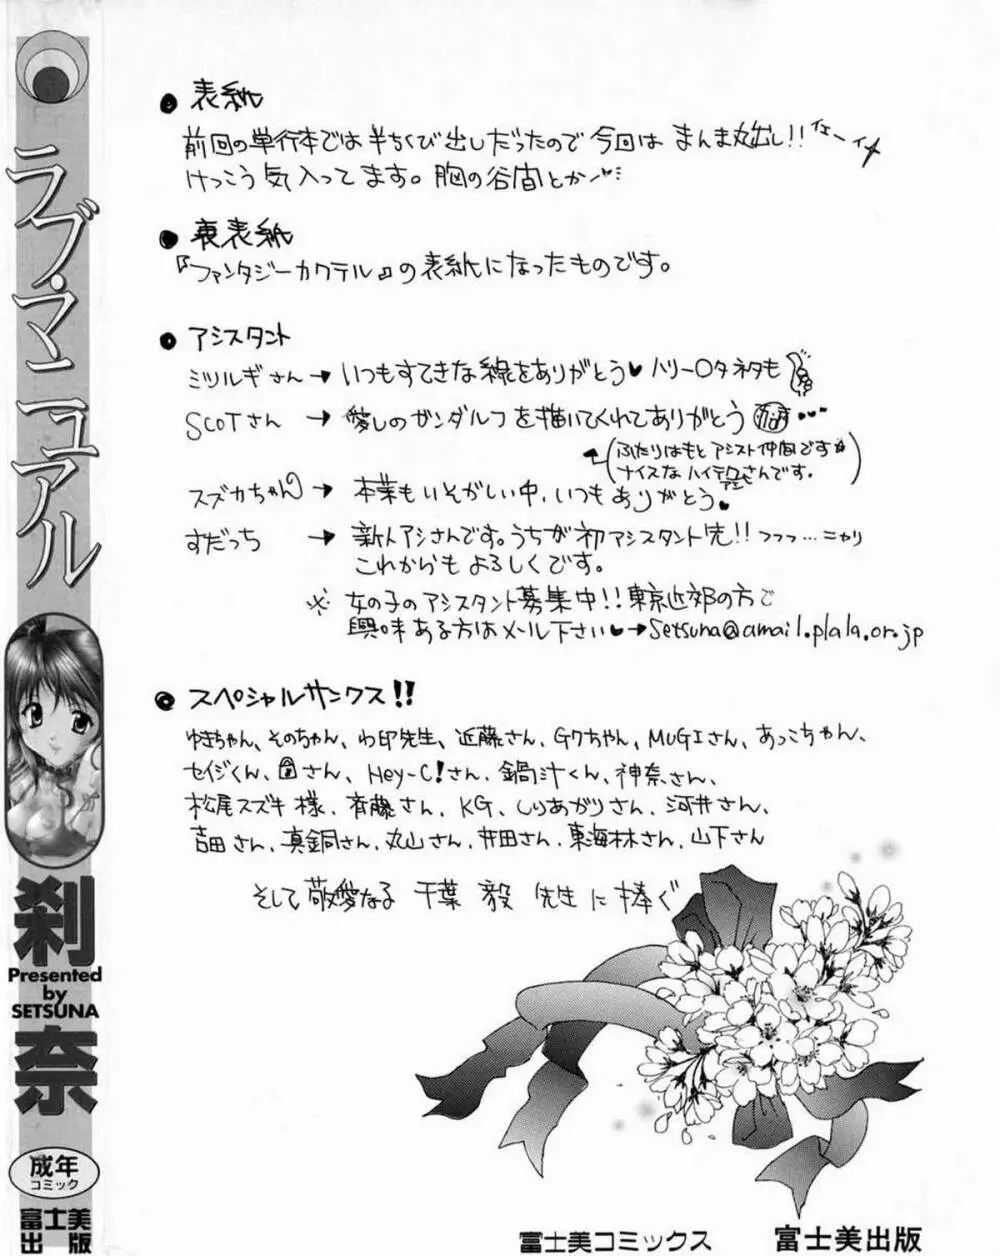 ラブ・マニュアル
刹奈
Presented
by
SETSUNA
成年
コミック
富士美
出版
● 表紙
前回の単行本では半ちくび出しだったので今回は まんま丸出し!! イェーイ
けっこう気入ってます。胸の谷間とか…
● 裏表紙
『ファンタジーカクテル』の表紙になったものです。
● アシスタント
ミツルギさん → いつもすてきな線をありがとう♥ ハリー○タネタも
SCOTさん → 愛しのガンダルフを描いてくれてありがとう
(ふたりはもとアシスト仲間です☆
ナイスなハイテクさんです。)
スズカちゃん → 本業もいそがしい中、いつもありがとう♥
すだっち → 新人アシさんです。うちが初アシスタント先!! フフフ…ニヤリ
これからもよろしくです。
※ 女の子のアシスタント募集中!! 東京近郊の方で
興味ある方はメール下さい♥→setsuna@amail.plala.or.jp
● スペシャルサンクス!!
ゆきちゃん、そのちゃん、わ印先生、近藤さん、Gクちゃん、MUGIさん、あっこちゃん、
セイジくん、さん、Hey-C!さん、鍋汁くん、神奈さん、
松尾スズキ様、斉藤さん、KG、しりあがりさん、河井さん、
吉田さん、真鍋さん、丸山さん、井田さん、東海林さん、山下さん
そして敬愛なる 千葉 毅 先生に捧ぐ
富士美コミックス 富士美出版